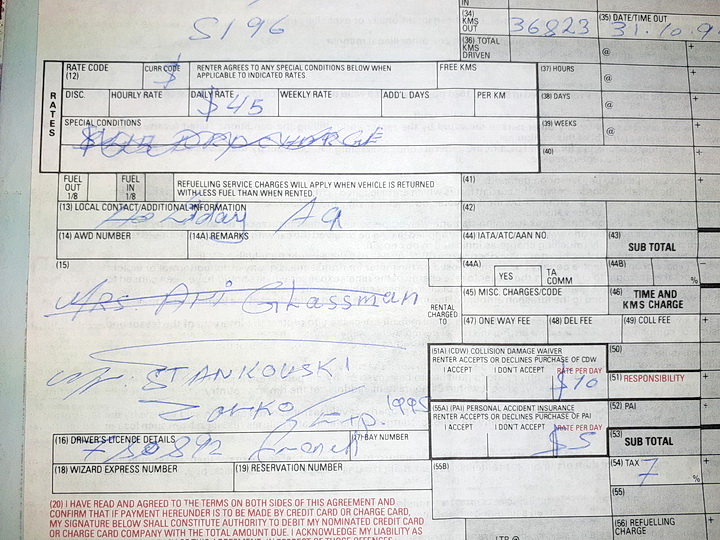 S196
IN
(34) KMS OUT 36823 (35) DATE/TIME OUT 31.10.9
(36) TOTAL KMS DRIVEN @ +
RATES
RATE CODE (12) CURR CODE $ RENTER AGREES TO ANY SPECIAL CONDITIONS BELOW WHEN APPLICABLE TO INDICATED RATES FREE KMS
(37) HOURS @
DISC. HOURLY RATE DAILY RATE $45 WEEKLY RATE ADD'L DAYS PER KM
(38) DAYS @
SPECIAL CONDITIONS
(39) WEEKS @
(40)
FUEL OUT 1/8 FUEL IN 1/8 REFUELLING SERVICE CHARGES WILL APPLY WHEN VEHICLE IS RETURNED WITH LESS FUEL THAN WHEN RENTED.
(41)
(13) LOCAL CONTACT/ADDITIONAL INFORMATION
Holiday
(42)
(14) AWD NUMBER (14A) REMARKS
(44) IATA/ATC/AAN NO. (43) SUB TOTAL
(15)
(44A) YES TA COMM (44B) %
Mrs. Api Glassman
RENTAL CHARGED TO
(45) MISC. CHARGES/CODE (46) TIME AND KMS CHARGE
(47) ONE WAY FEE (48) DEL FEE (49) COLL FEE +
(51A) (CDW) COLLISION DAMAGE WAIVER
RENTER ACCEPTS OR DECLINES PURCHASE OF CDW
I ACCEPT I DON'T ACCEPT RATE PER DAY
$10
(50)
(51) RESPONSIBILITY +
STANKOWSKI
Zorko Exp. 1995
(55A) (PAI) PERSONAL ACCIDENT INSURANCE
RENTER ACCEPTS OR DECLINES PURCHASE OF PAI
I ACCEPT I DON'T ACCEPT RATE PER DAY
$5
(52) PAI +
(53) SUB TOTAL
(16) DRIVER'S LICENCE DETAILS (17) BAY NUMBER
(18) WIZARD EXPRESS NUMBER (19) RESERVATION NUMBER
(55B)
(54) TAX 7 % +
(55)
(56) REFUELLING CHARGE +
(20) I HAVE READ AND AGREED TO THE TERMS ON BOTH SIDES OF THIS AGREEMENT AND
CONFIRM THAT IF PAYMENT HEREUNDER IS TO BE MADE BY CREDIT CARD OR CHARGE CARD,
MY SIGNATURE BELOW SHALL CONSTITUTE AUTHORITY TO DEBIT MY NOMINATED CREDIT CARD
OR CHARGE CARD COMPANY WITH THE TOTAL AMOUNT DUE. I ACKNOWLEDGE MY LIABILITY AS